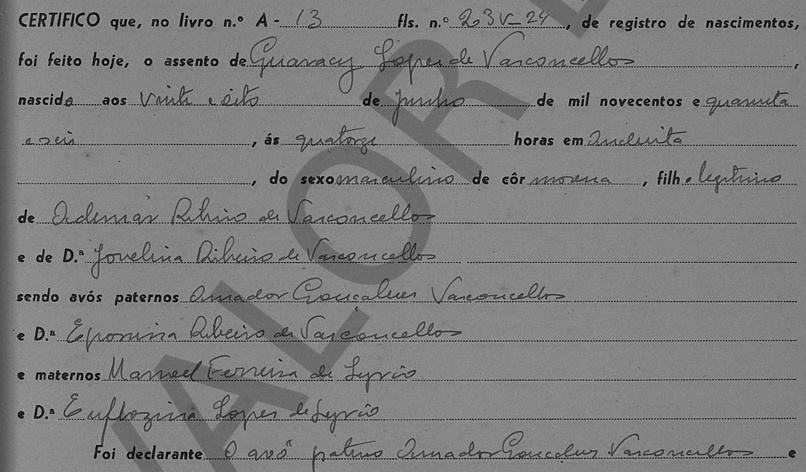 CERTIFICO que, no livro n.º A - 13 fls. n.º 23V-24, de registro de nascimentos,
foi feito hoje, o assento de Guaracy Lopes de Vasconcellos,
nascido aos vinte e oito de Junho de mil novecentos e quarenta
e seis, ás quatorze horas em
, do sexo masculino de côr morena, filho legitimo
de Ademar Ribeiro de Vasconcellos
e de D.ª Jovelina Ribeiro de Vasconcellos
sendo avós paternos Amador Gonçalves Vasconcellos
e D.ª Ribeiro de Vasconcellos
e maternos Manoel Ferreira de Syrio
e D.ª Euflozina Lopes de Syrio
Foi declarante O avô paterno Amador Gonçalves Vasconcellos e
VALOR